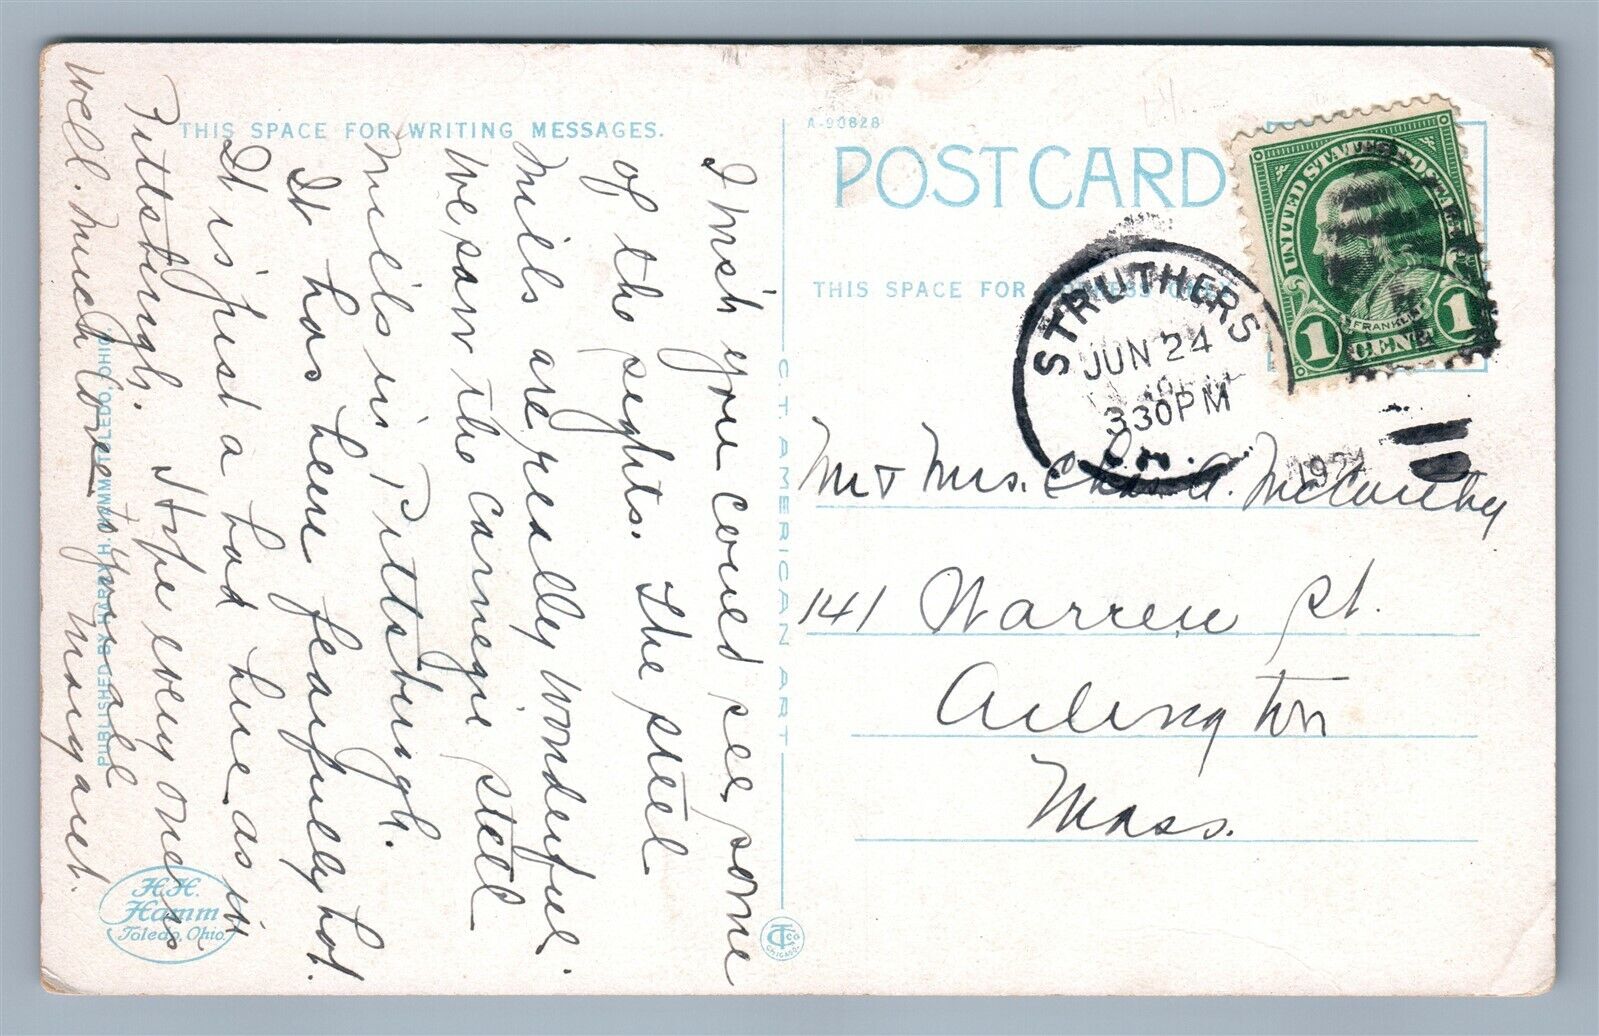 THIS SPACE FOR WRITING MESSAGES.
I wish you could see some
of the sights. The steel
mills are really wonderful.
We saw the Carnegie steel
mills in Pittsburgh.
It has been fearfully hot.
It is just a bad here as in
Pittsburgh. Hope every one is
well. Much love to you all
Margaret.
PUBLISHED BY HARRY H. HAMM, TOLEDO, OHIO
H.H.
Hamm
Toledo, Ohio.
C. T. AMERICAN ART
CT Co
CHICAGO
A-90828
POST CARD
THIS SPACE FOR ADDRESS ONLY
STRUTHERS
JUN 24
330PM
O.
1924
UNITED STATES POSTAGE
FRANKLIN
1 CENT 1
Mr & Mrs. Chas. A. McCarthy
141 Warren St.
Arlington
Mass.